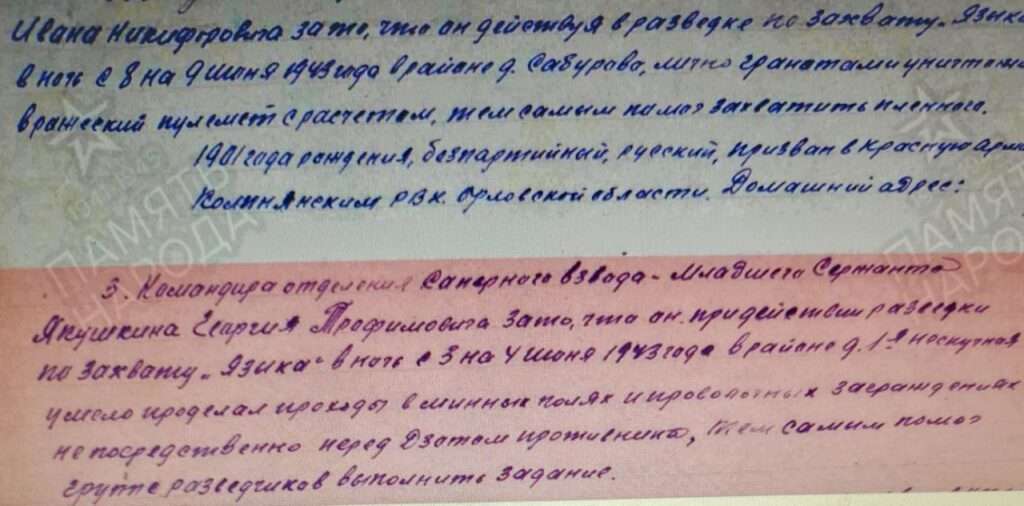 Ивана Никифоровича за то, что он действуя в разведке по захвату „Языка
в ночь с 8 на 9 июня 1943 года в районе д. Сабурово, лично гранатами уничтожил
вражеский пулемет с расчетом, тем самым помог захватить пленного.
1901 года рождения, безпартийный, русский, призван в Красную Арми
Колпнянским РВК. Орловской области. Домашний адрес:
ПАМЯТЬ
НАРОДА
ПАМЯТЬ
НАРОДА
3. Командира отделения Саперного взвода - Младшего Сержанта
Якушкина Георгия Трофимовича за то, что он. при действии разведки
по захвату „Языка" в ночь с 3 на 4 июня 1943 года в районе д. 1-я
умело проделал проходы в минных полях и проволочных заграждениях
непосредственно перед Дзотом противника, тем самым помог
группе разведчиков выполнить задание.